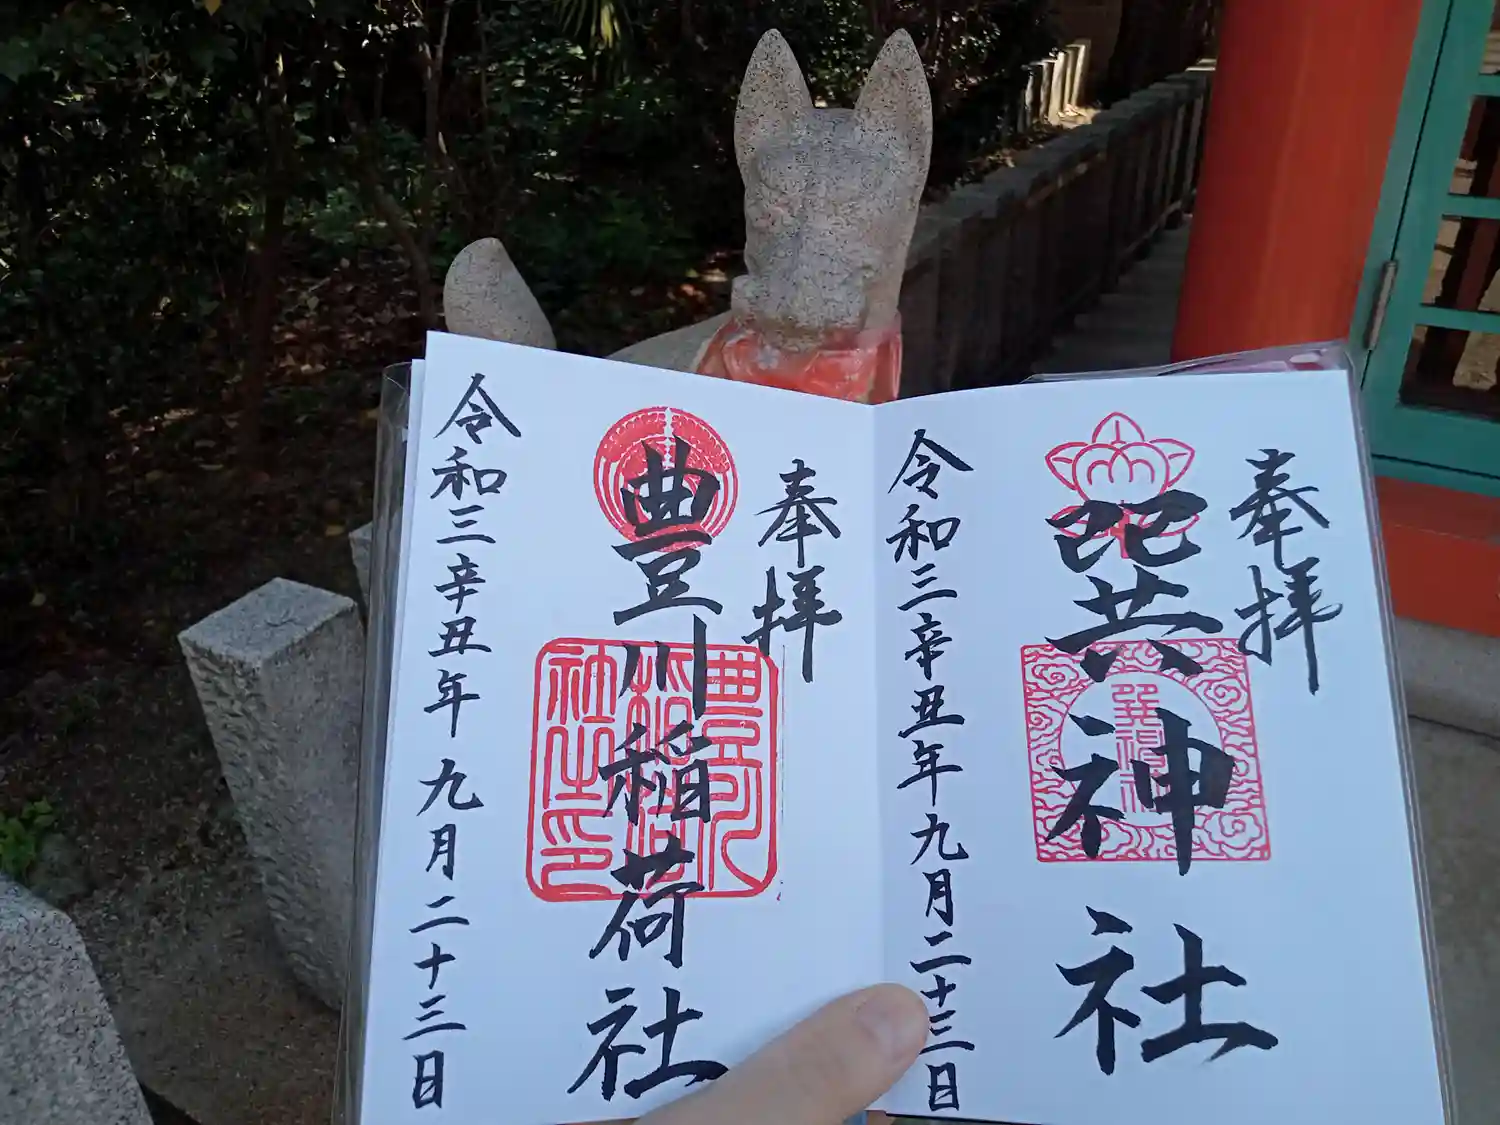 奉拝
巽神社
令和三辛丑年九月二十三日
奉拝
豊川稲荷社
豊川
稲荷
社之印
令和三辛丑年九月二十三日